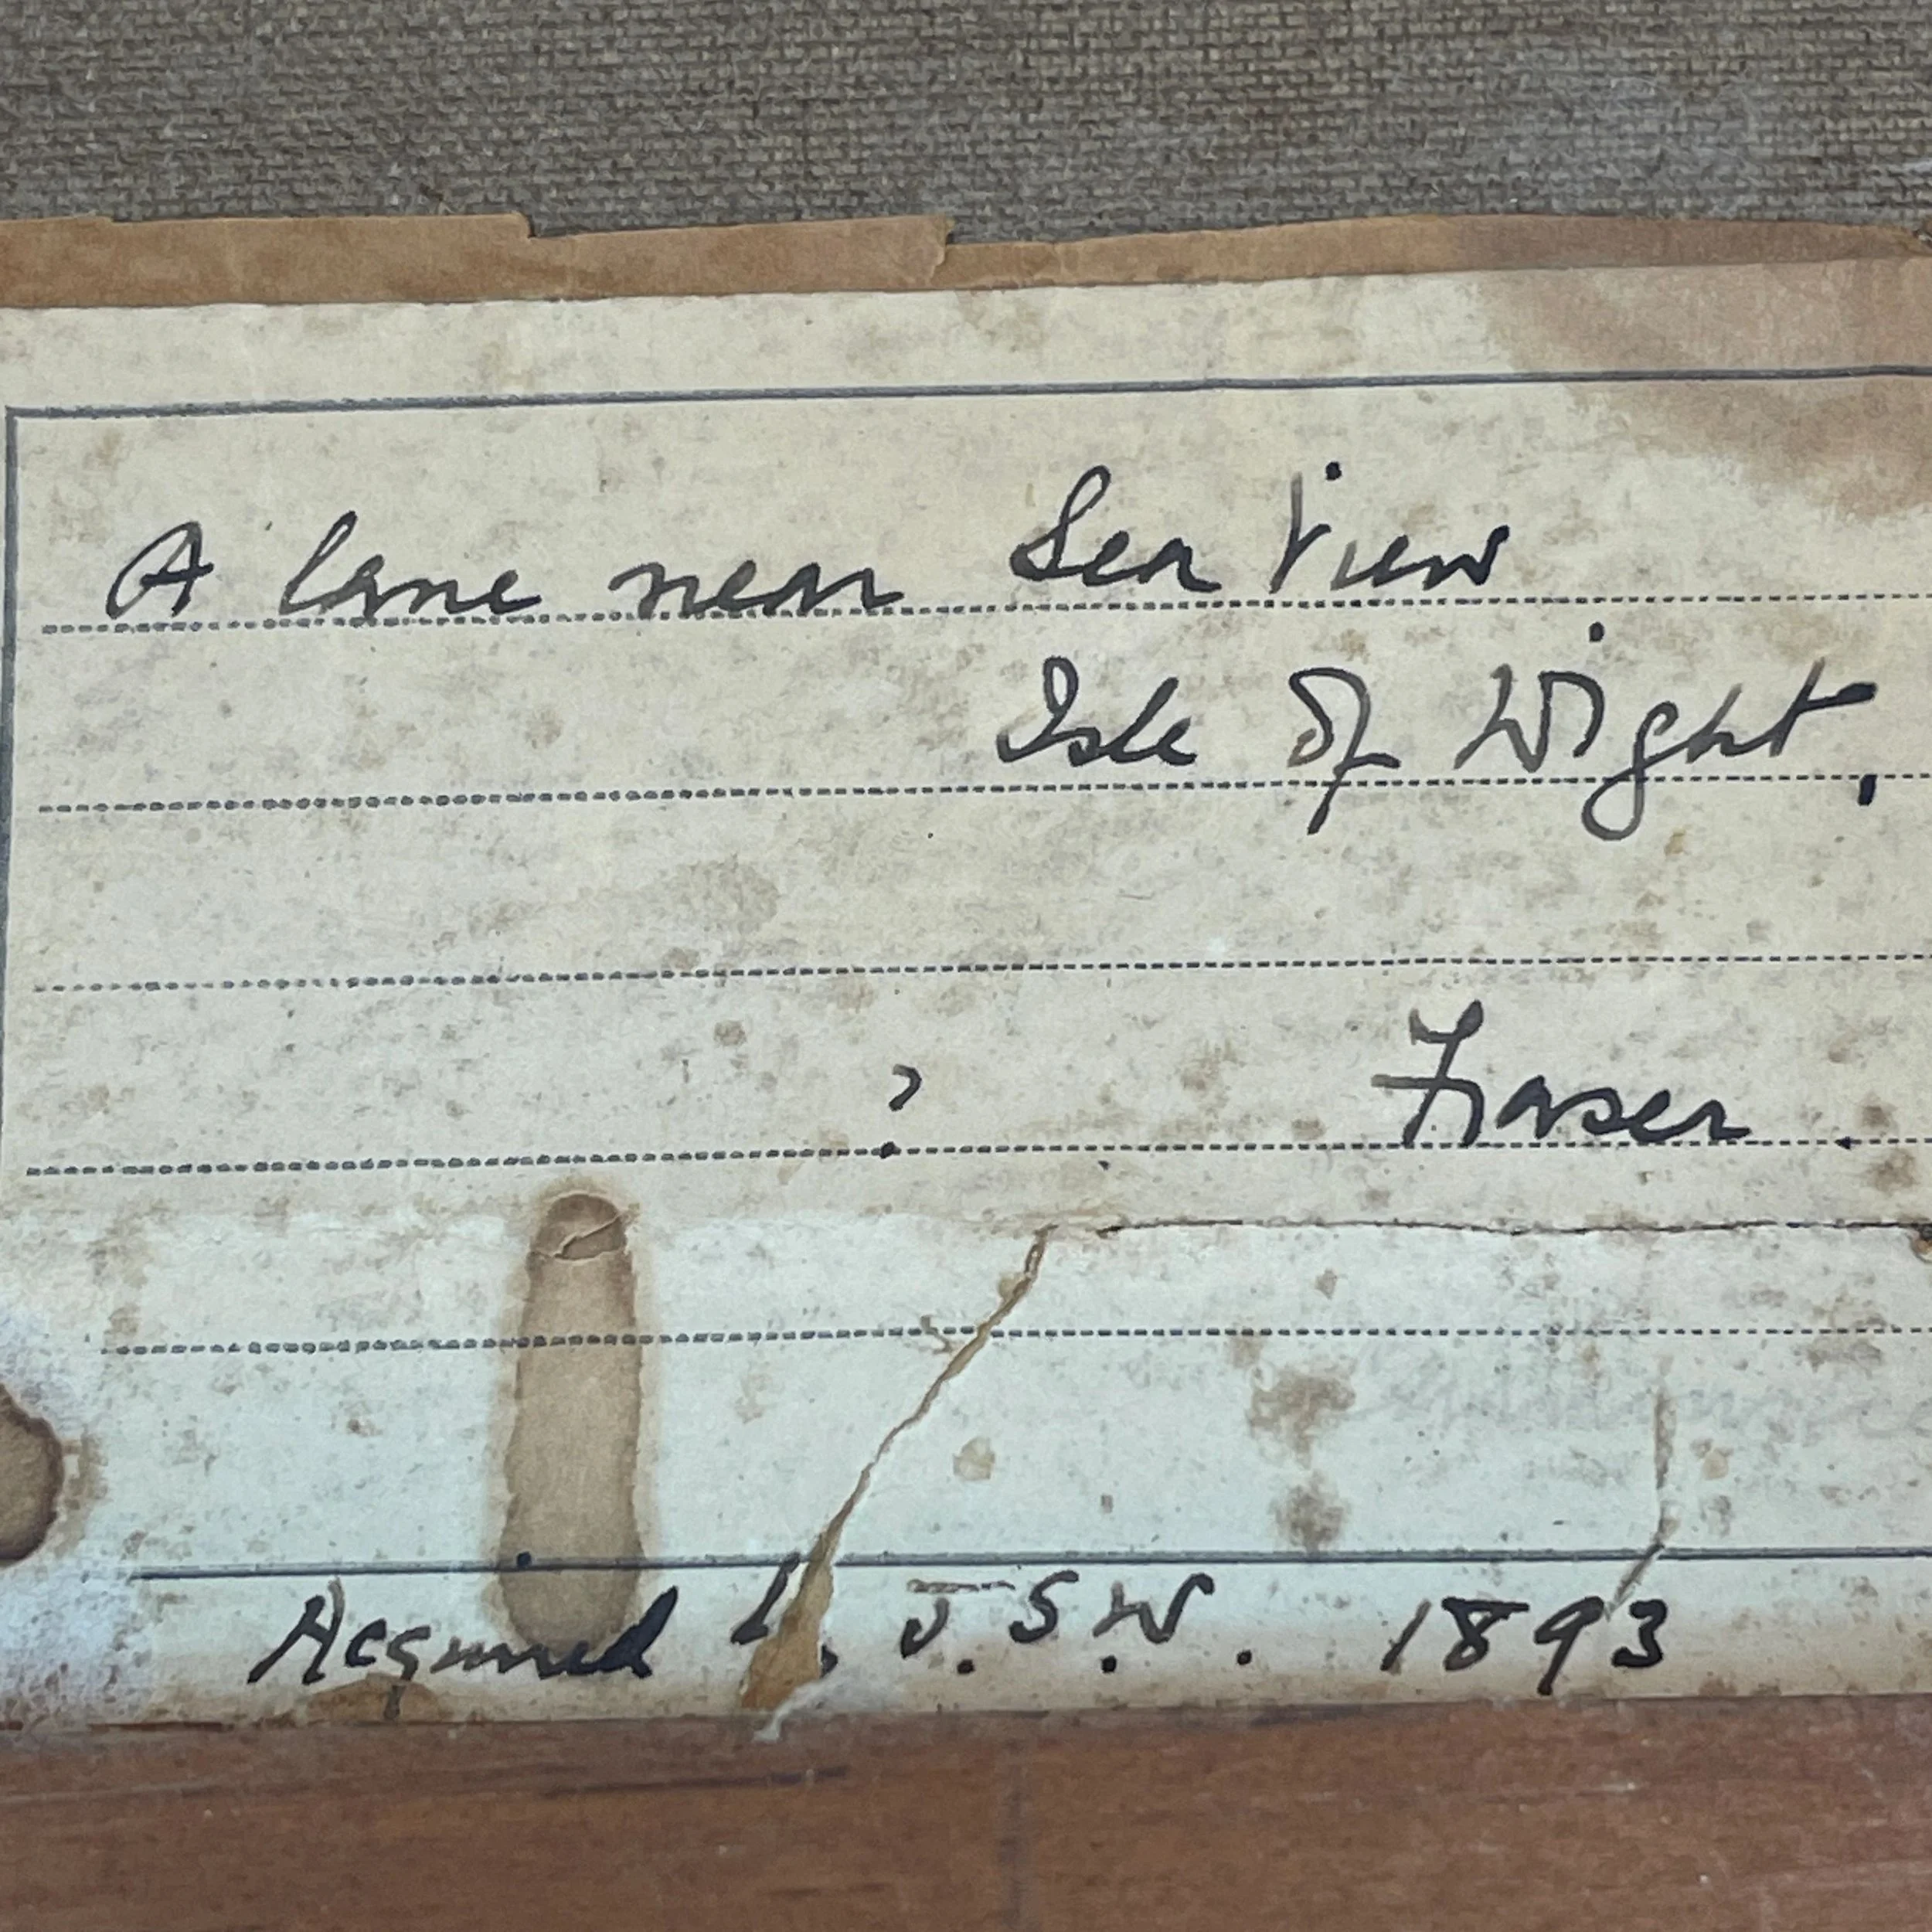 A lane near Sea View
Isle of Wight,
? Fraser.
Acquired J.S.W. 1893